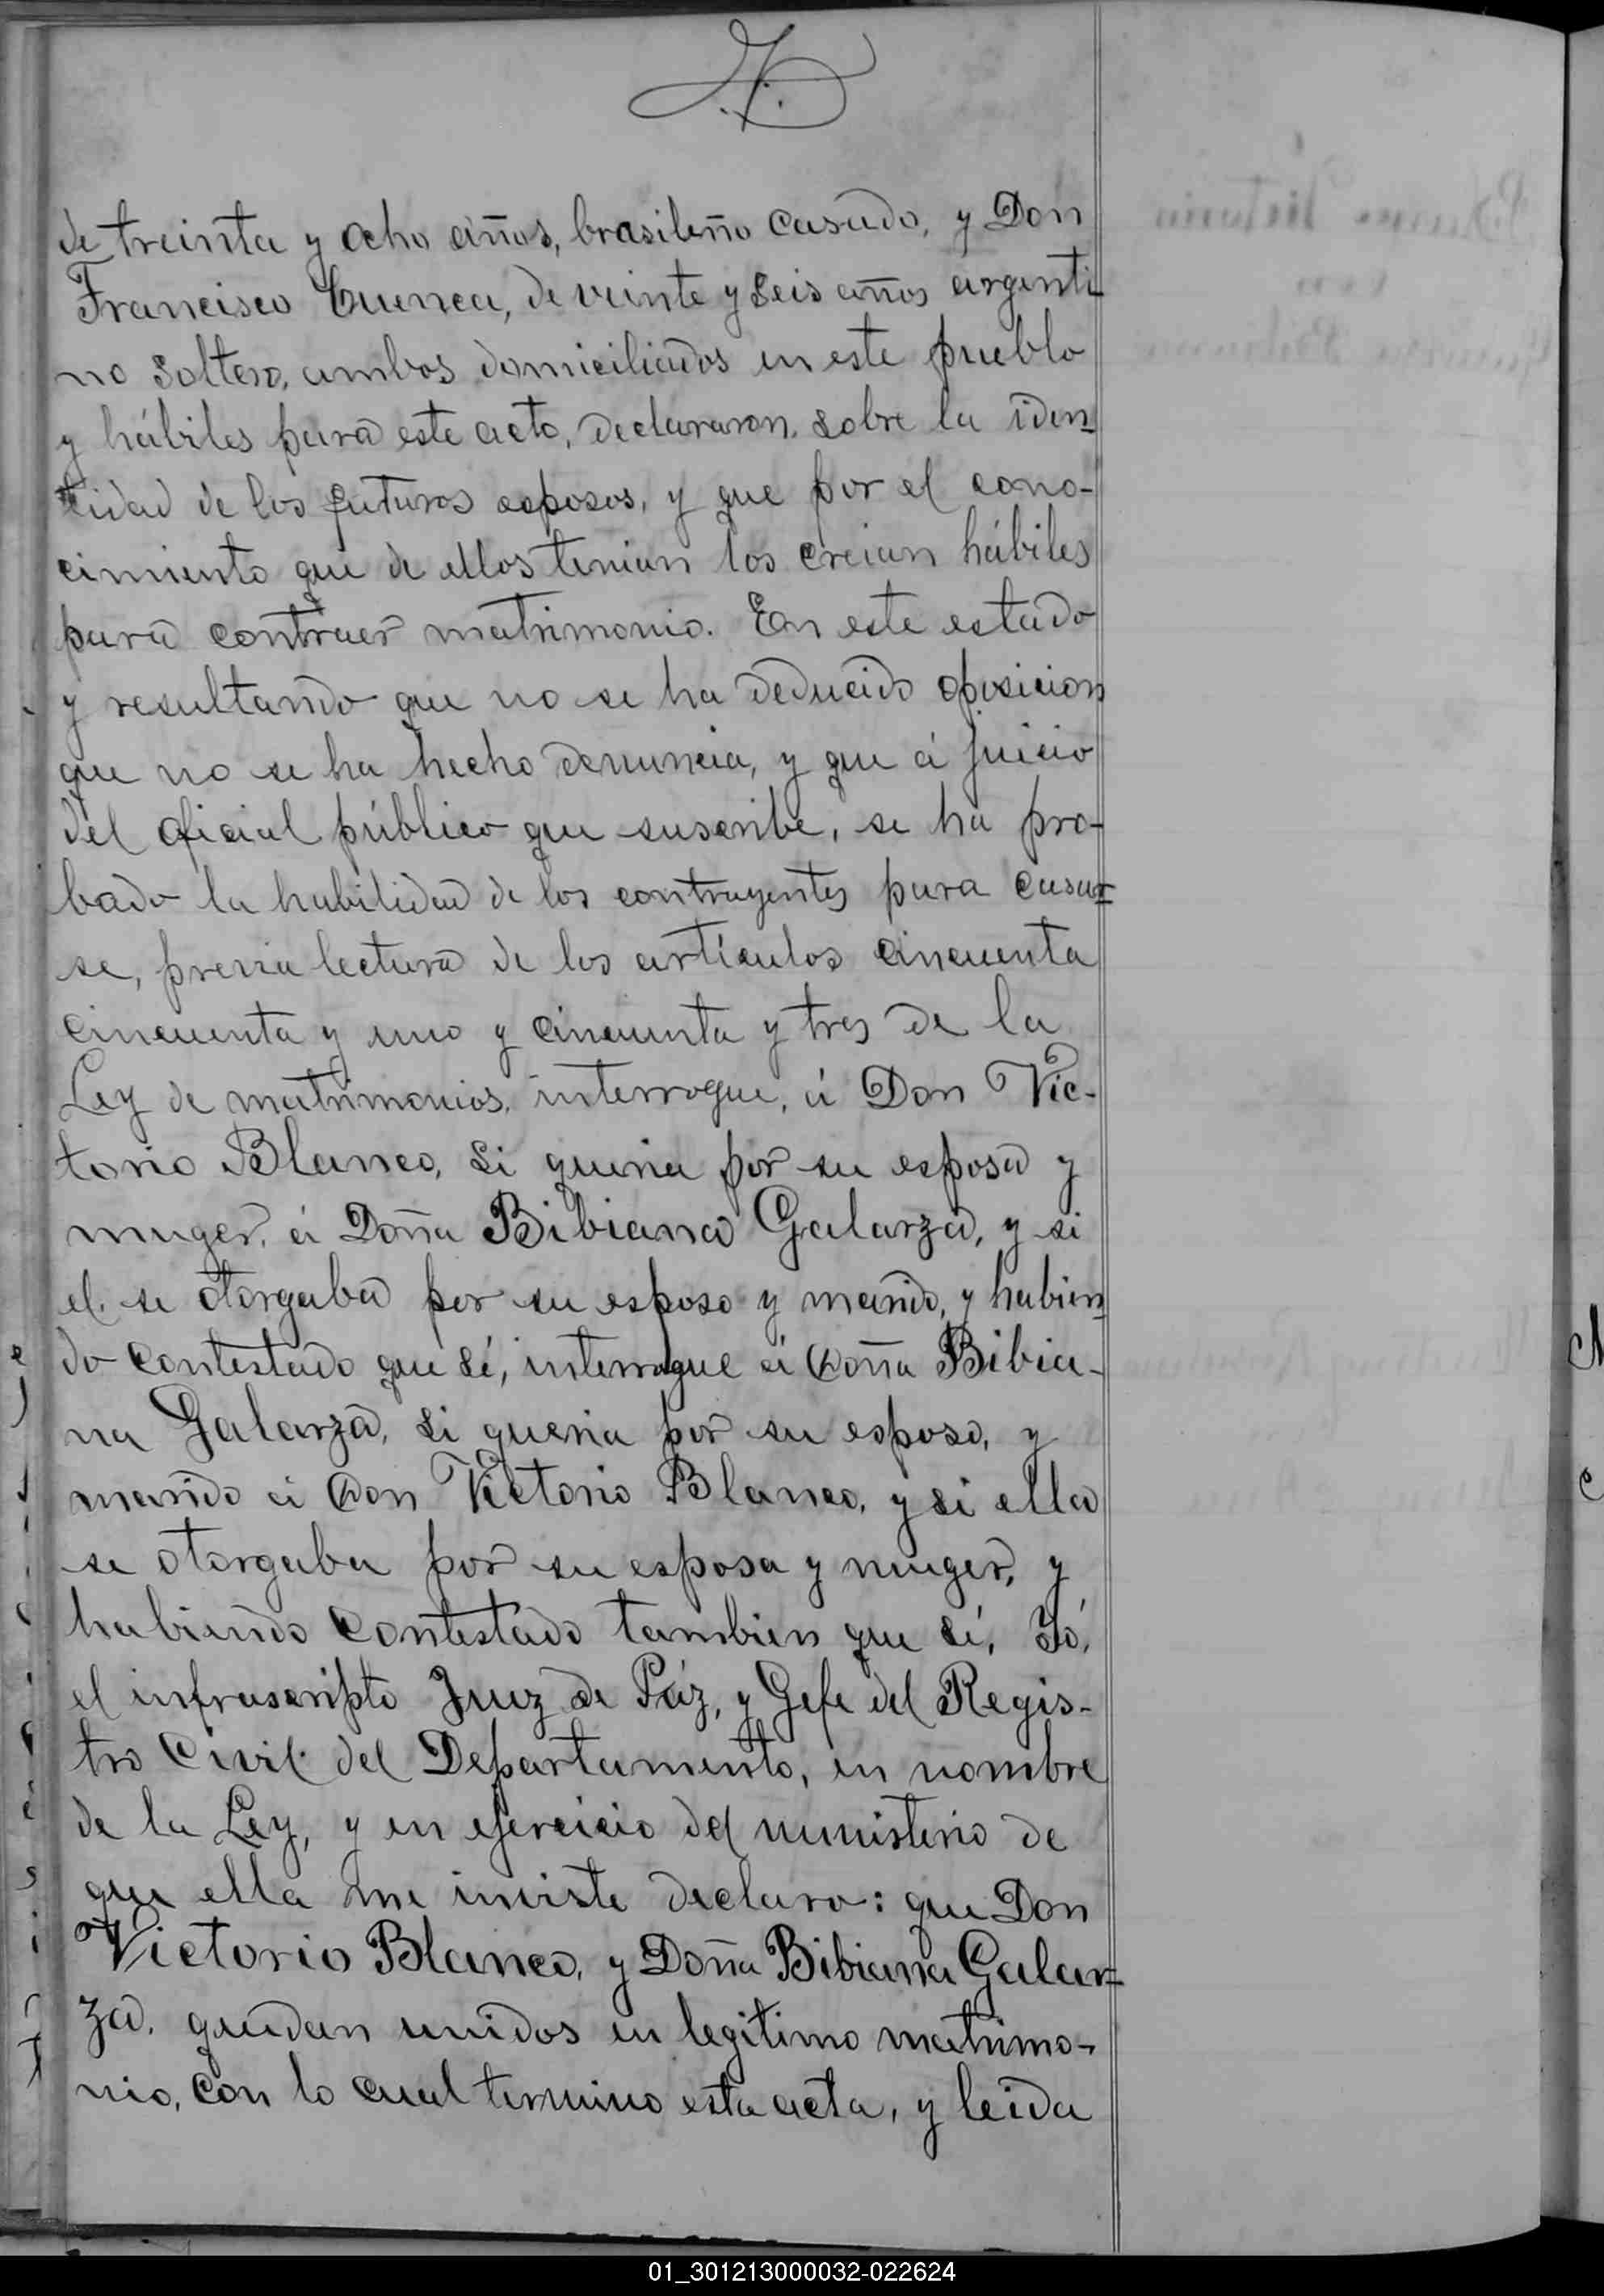 de treinta y ocho años, brasileño casado, y Don
Francisco Cuenca, de veinte y seis años argenti-
no soltero, ambos domiciliados en este pueblo
y hábiles para este acto, declararon, sobre la iden-
tidad de los futuros esposos, y que por el cono-
cimiento que de ellos tenian los creian hábiles
para contraer matrimonio. En este estado
y resultando que no se ha deducido oposicion
que no se ha hecho denuncia, y que á juicio
del oficial público que suscribe, se ha pro-
bado la habilidad de los contrayentes para casar-
se, previa lectura de los artículos cincuenta
cincuenta y uno y cincuenta y tres de la
Ley de matrimonios, interrogue, á Don Vic-
torio Blanco, si queria por su esposa y
muger, á Doña Bibiana Galarza, y si
el se otorgaba por su esposo y marido, y habien-
do contestado que sí, interrogue á Doña Bibia-
na Galarza, si queria por su esposo, y
marido á Don Victorio Blanco, y si ella
se otorgaba por su esposa y muger, y
habiendo contestado tambien que sí, Yó,
el infrascripto Juez de Páz, y Gefe del Regis-
tro Civil del Departamento, en nombre
de la Ley, y en ejercicio del ministerio de
que ella me inviste declaro: que Don
Victorio Blanco, y Doña Bibiana Galar-
za, quedan unidos en legitimo matrimo-
nio, con lo cual termino esta acta, y leida
01_301213000032-022624